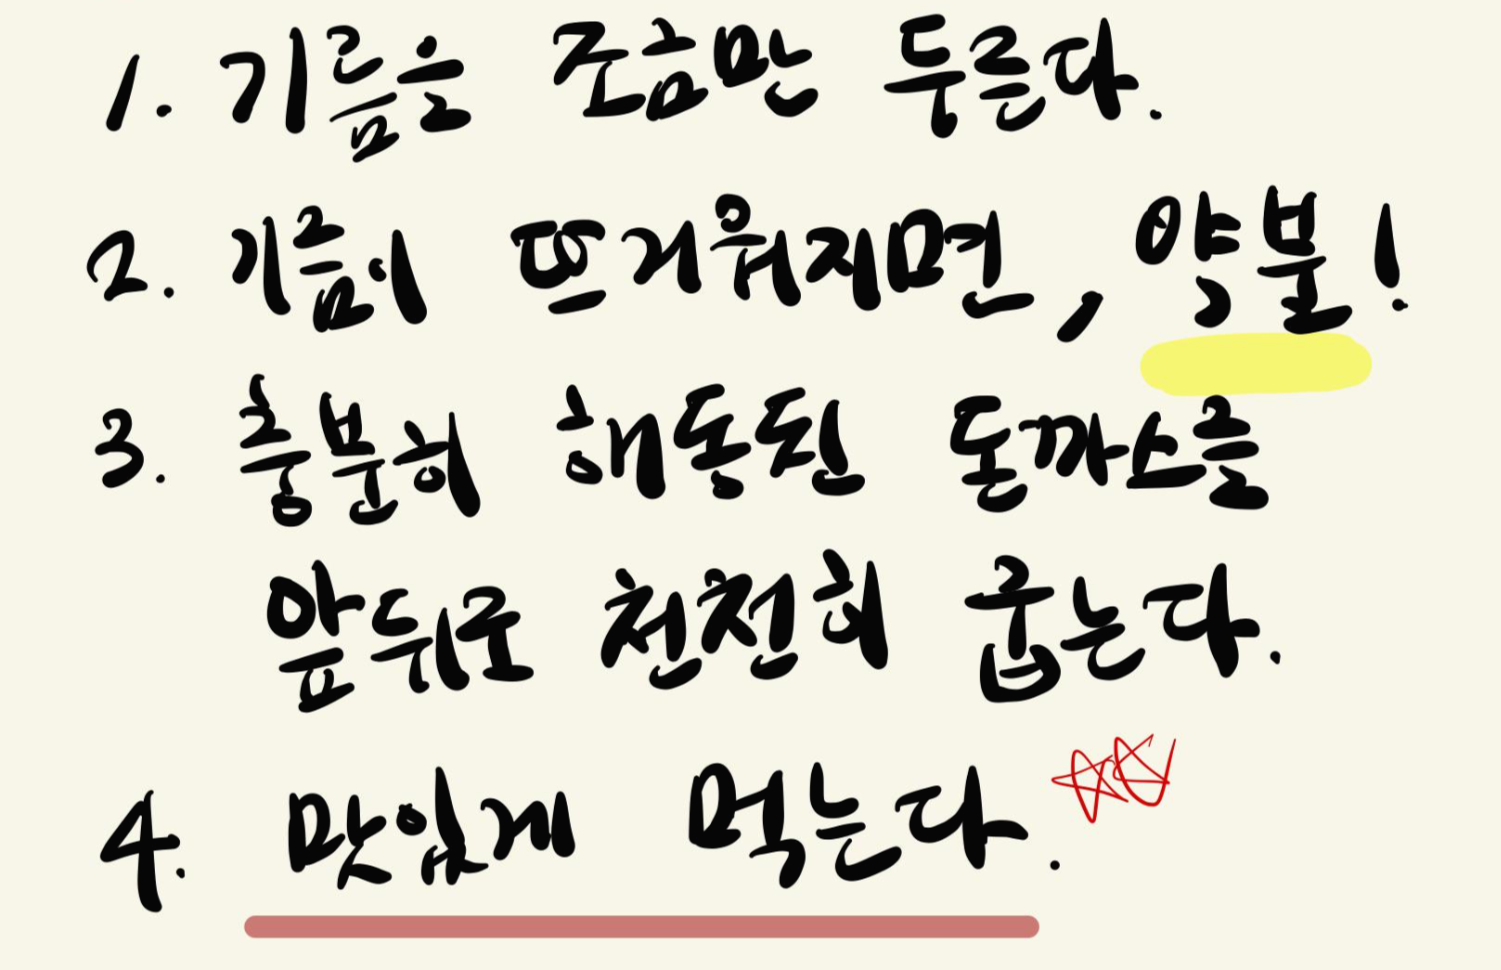 1. 기름은 조금만 두른다.
2. 기름이 뜨거워지면, 약불!
3. 충분히 해동된 돈까스를
앞뒤로 천천히 굽는다.
4. 맛있게 먹는다.